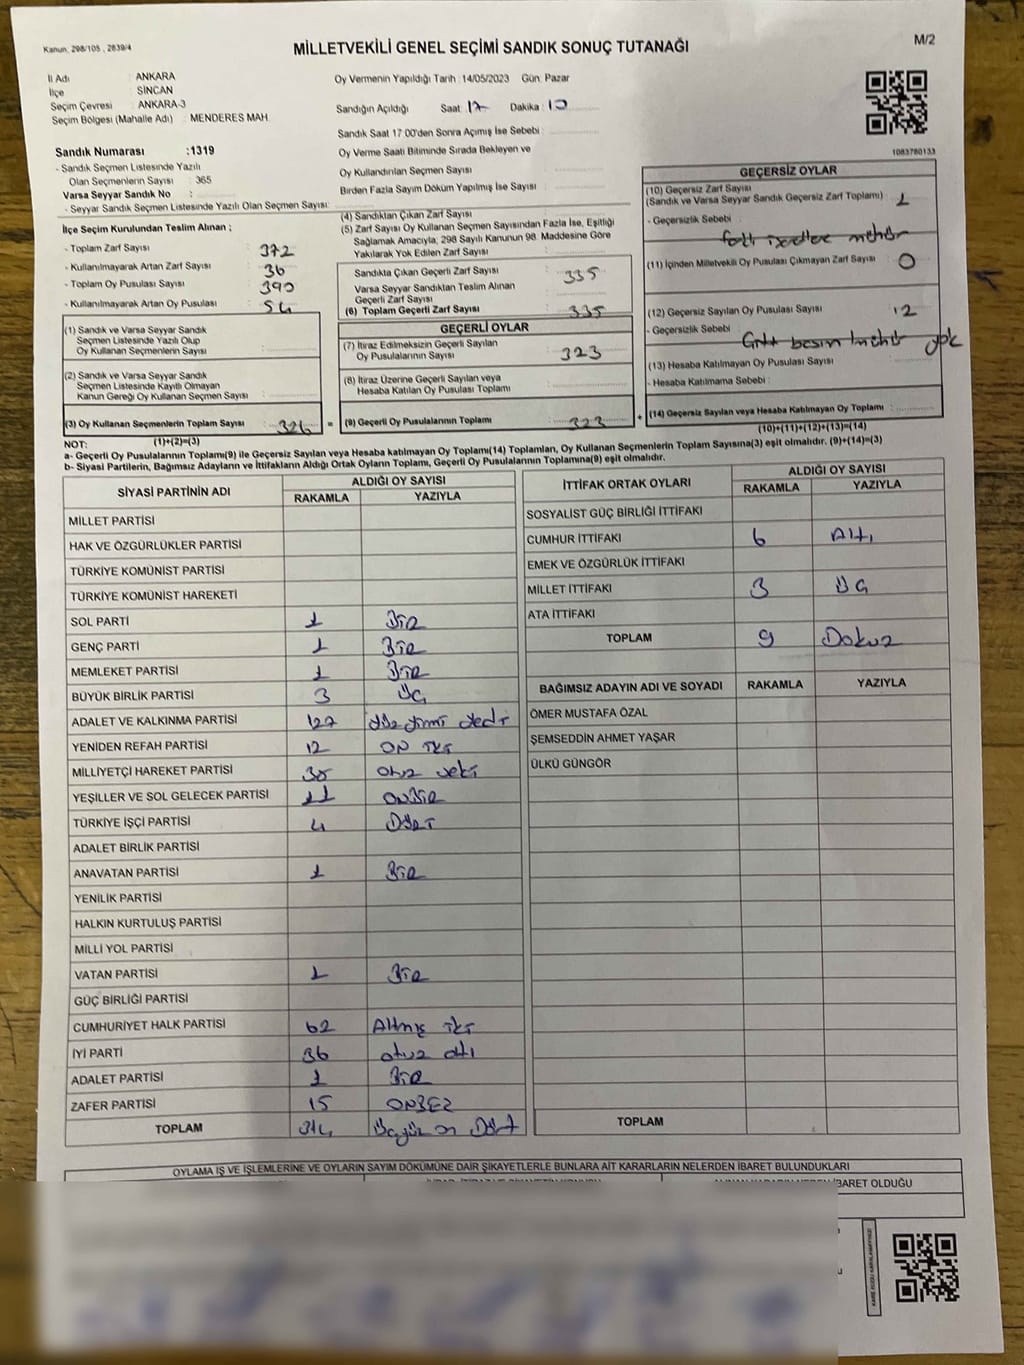 Kanun, 298/105 , 2839/4
MİLLETVEKİLİ GENEL SEÇİMİ SANDIK SONUÇ TUTANAĞI
M/2
İl Adı : ANKARA
İlçe : SİNCAN
Seçim Çevresi : ANKARA-3
Seçim Bölgesi (Mahalle Adı) : MENDERES MAH.
Sandık Numarası :1319
- Sandık Seçmen Listesinde Yazılı
Olan Seçmenlerin Sayısı : 365
Varsa Seyyar Sandık No :
- Seyyar Sandık Seçmen Listesinde Yazılı Olan Seçmen Sayısı:
Oy Vermenin Yapıldığı Tarih : 14/05/2023 Gün: Pazar
Sandığın Açıldığı Saat: 17 Dakika : 10
Sandık Saat 17:00'den Sonra Açımış İse Sebebi :
Oy Verme Saati Bitiminde Sırada Bekleyen ve
Oy Kullandırılan Seçmen Sayısı :
Birden Fazla Sayım Döküm Yapılmış İse Sayısı :
1083760133
İlçe Seçim Kurulundan Teslim Alınan ;
- Toplam Zarf Sayısı : 372
- Kullanılmayarak Artan Zarf Sayısı : 36
- Toplam Oy Pusulası Sayısı : 390
- Kullanılmayarak Artan Oy Pusulası : 54
(1) Sandık ve Varsa Seyyar Sandık
Seçmen Listesinde Yazılı Olup
Oy Kullanan Seçmenlerin Sayısı :
(2) Sandık ve Varsa Seyyar Sandık
Seçmen Listesinde Kayıtlı Olmayan
Kanun Gereği Oy Kullanan Seçmen Sayısı :
(3) Oy Kullanan Seçmenlerin Toplam Sayısı : 326 =
(4) Sandıktan Çıkan Zarf Sayısı :
(5) Zarf Sayısı Oy Kullanan Seçmen Sayısından Fazla İse, Eşitliği
Sağlamak Amacıyla; 298 Sayılı Kanunun 98. Maddesine Göre
Yakılarak Yok Edilen Zarf Sayısı :
Sandıkta Çıkan Geçerli Zarf Sayısı : 335
Varsa Seyyar Sandıktan Teslim Alınan
Geçerli Zarf Sayısı :
(6) Toplam Geçerli Zarf Sayısı : 335
GEÇERLİ OYLAR
(7) İtiraz Edilmeksizin Geçerli Sayılan
Oy Pusulalarının Sayısı : 323
(8) İtiraz Üzerine Geçerli Sayılan veya
Hesaba Katılan Oy Pusulası Toplamı :
(9) Geçerli Oy Pusulalarının Toplamı : 323 +
GEÇERSİZ OYLAR
(10) Geçersiz Zarf Sayısı
(Sandık ve Varsa Seyyar Sandık Geçersiz Zarf Toplamı) : 1
- Geçersizlik Sebebi :
mühür
(11) İçinden Milletvekili Oy Pusulası Çıkmayan Zarf Sayısı : 0
(12) Geçersiz Sayılan Oy Pusulası Sayısı : 12
- Geçersizlik Sebebi : mühür yok
(13) Hesaba Katılmayan Oy Pusulası Sayısı :
- Hesaba Katılmama Sebebi :
(14) Geçersiz Sayılan veya Hesaba Katılmayan Oy Toplamı :
NOT: (1)+(2)=(3)
(10)+(11)+(12)+(13)=(14)
a- Geçerli Oy Pusulalarının Toplamı(9) ile Geçersiz Sayılan veya Hesaba katılmayan Oy Toplamı(14) Toplamları, Oy Kullanan Seçmenlerin Toplam Sayısına(3) eşit olmalıdır. (9)+(14)=(3)
b- Siyasi Partilerin, Bağımsız Adayların ve İttifakların Aldığı Ortak Oyların Toplamı, Geçerli Oy Pusulalarının Toplamına(9) eşit olmalıdır.
SİYASİ PARTİNİN ADI ALDIĞI OY SAYISI
RAKAMLA YAZIYLA
MİLLET PARTİSİ
HAK VE ÖZGÜRLÜKLER PARTİSİ
TÜRKİYE KOMÜNİST PARTİSİ
TÜRKİYE KOMÜNİST HAREKETİ
SOL PARTİ 1 Bir
GENÇ PARTİ 1 Bir
MEMLEKET PARTİSİ 1 Bir
BÜYÜK BİRLİK PARTİSİ 3 Üç
ADALET VE KALKINMA PARTİSİ 127 yüzyirmi yedi
YENİDEN REFAH PARTİSİ 12 ON İKİ
MİLLİYETÇİ HAREKET PARTİSİ otuz sekiz
YEŞİLLER VE SOL GELECEK PARTİSİ 11 ONBİR
TÜRKİYE İŞÇİ PARTİSİ 4 Dört
ADALET BİRLİK PARTİSİ
ANAVATAN PARTİSİ 1 Bir
YENİLİK PARTİSİ
HALKIN KURTULUŞ PARTİSİ
MİLLİ YOL PARTİSİ
VATAN PARTİSİ 1 Bir
GÜÇ BİRLİĞİ PARTİSİ
CUMHURİYET HALK PARTİSİ 62 Altmış iki
İYİ PARTİ 36 otuz altı
ADALET PARTİSİ 1 Bir
ZAFER PARTİSİ 15 ONBEŞ
TOPLAM 314 Üçyüz on Dört
İTTİFAK ORTAK OYLARI ALDIĞI OY SAYISI
RAKAMLA YAZIYLA
SOSYALİST GÜÇ BİRLİĞİ İTTİFAKI
CUMHUR İTTİFAKI 6 Altı
EMEK VE ÖZGÜRLÜK İTTİFAKI
MİLLET İTTİFAKI 3 ÜÇ
ATA İTTİFAKI
TOPLAM 9 Dokuz
BAĞIMSIZ ADAYIN ADI VE SOYADI RAKAMLA YAZIYLA
ÖMER MUSTAFA ÖZAL
ŞEMSEDDİN AHMET YAŞAR
ÜLKÜ GÜNGÖR
TOPLAM
OYLAMA İŞ VE İŞLEMLERİNE VE OYLARIN SAYIM DÖKÜMÜNE DAİR ŞİKAYETLERLE BUNLARA AİT KARARLARIN NELERDEN İBARET BULUNDUKLARI
İBARET OLDUĞU